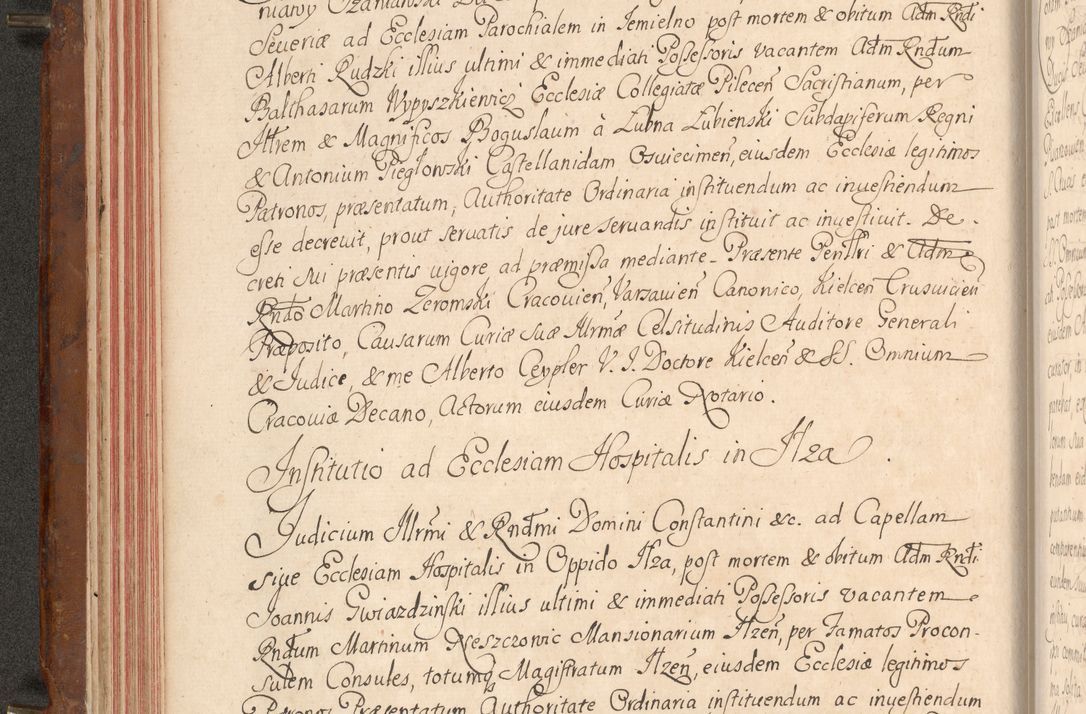 Severiæ ad Ecclesiam Parochialem in Jemielno post mortem & obitum Adm Rndi
Alberti Rudzki illius ultimi & immediati Possessoris vacantem Adm Rndum
Balthasarum Wypyszkiewicz Ecclesiæ Collegiatæ Pilecen̄ Sacristianum, per
Illrem & Magnificos Boguslaum à Lubna Lubienski Subdapiferum Regni
& Antonium Pieglowski Castellanidam Osviecimen̄, eiusdem Ecclesiæ legitimos
Patronos, præsentatum, Authoritate Ordinaria instituendum ac investiendum
esse decrevit, prout servatis de jure servandis instituit ac investivit. De-
creti sui præsentis vigore ad præmissa mediante. Præsente Penllri & Adm
Rndo Martino Zeromski Cracovien̄, Varsavien̄ Canonico, Kielcen̄ Crusvicien̄
Præposito, Causarum Curiæ suæ Illrmæ Celsitudinis Auditore Generali
& Judice, & me Alberto Ceypler V. J. Doctore Kielcen̄ & SS. Omnium
Cracoviæ Decano, Actorum eiusdem Curiæ Notario.
Institutio ad Ecclesiam Hospitalis in Ilza.
Judicium Illrmi & Rndmi Domini Constantini &c. ad Capellam
sive Ecclesiam Hospitalis in Oppido Ilza, post mortem & obitum Adm Rndi
Joannis Gwiazdzinski illius ultimi & immediati Possessoris vacantem
Rndum Martinum Neszczowic Mansionarium Ilzen̄, per Famatos Procon-
sulem Consules, totumq Magistratum Ilzen̄, eiusdem Ecclesiæ legitimos
Patronos Præsentatum Authoritate Ordinaria instituendum ac investiendum